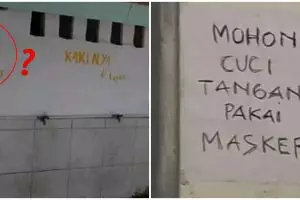 ?
KAKI NYA
MOHON
CUCI
TANGAN
PAKAI
MASKER